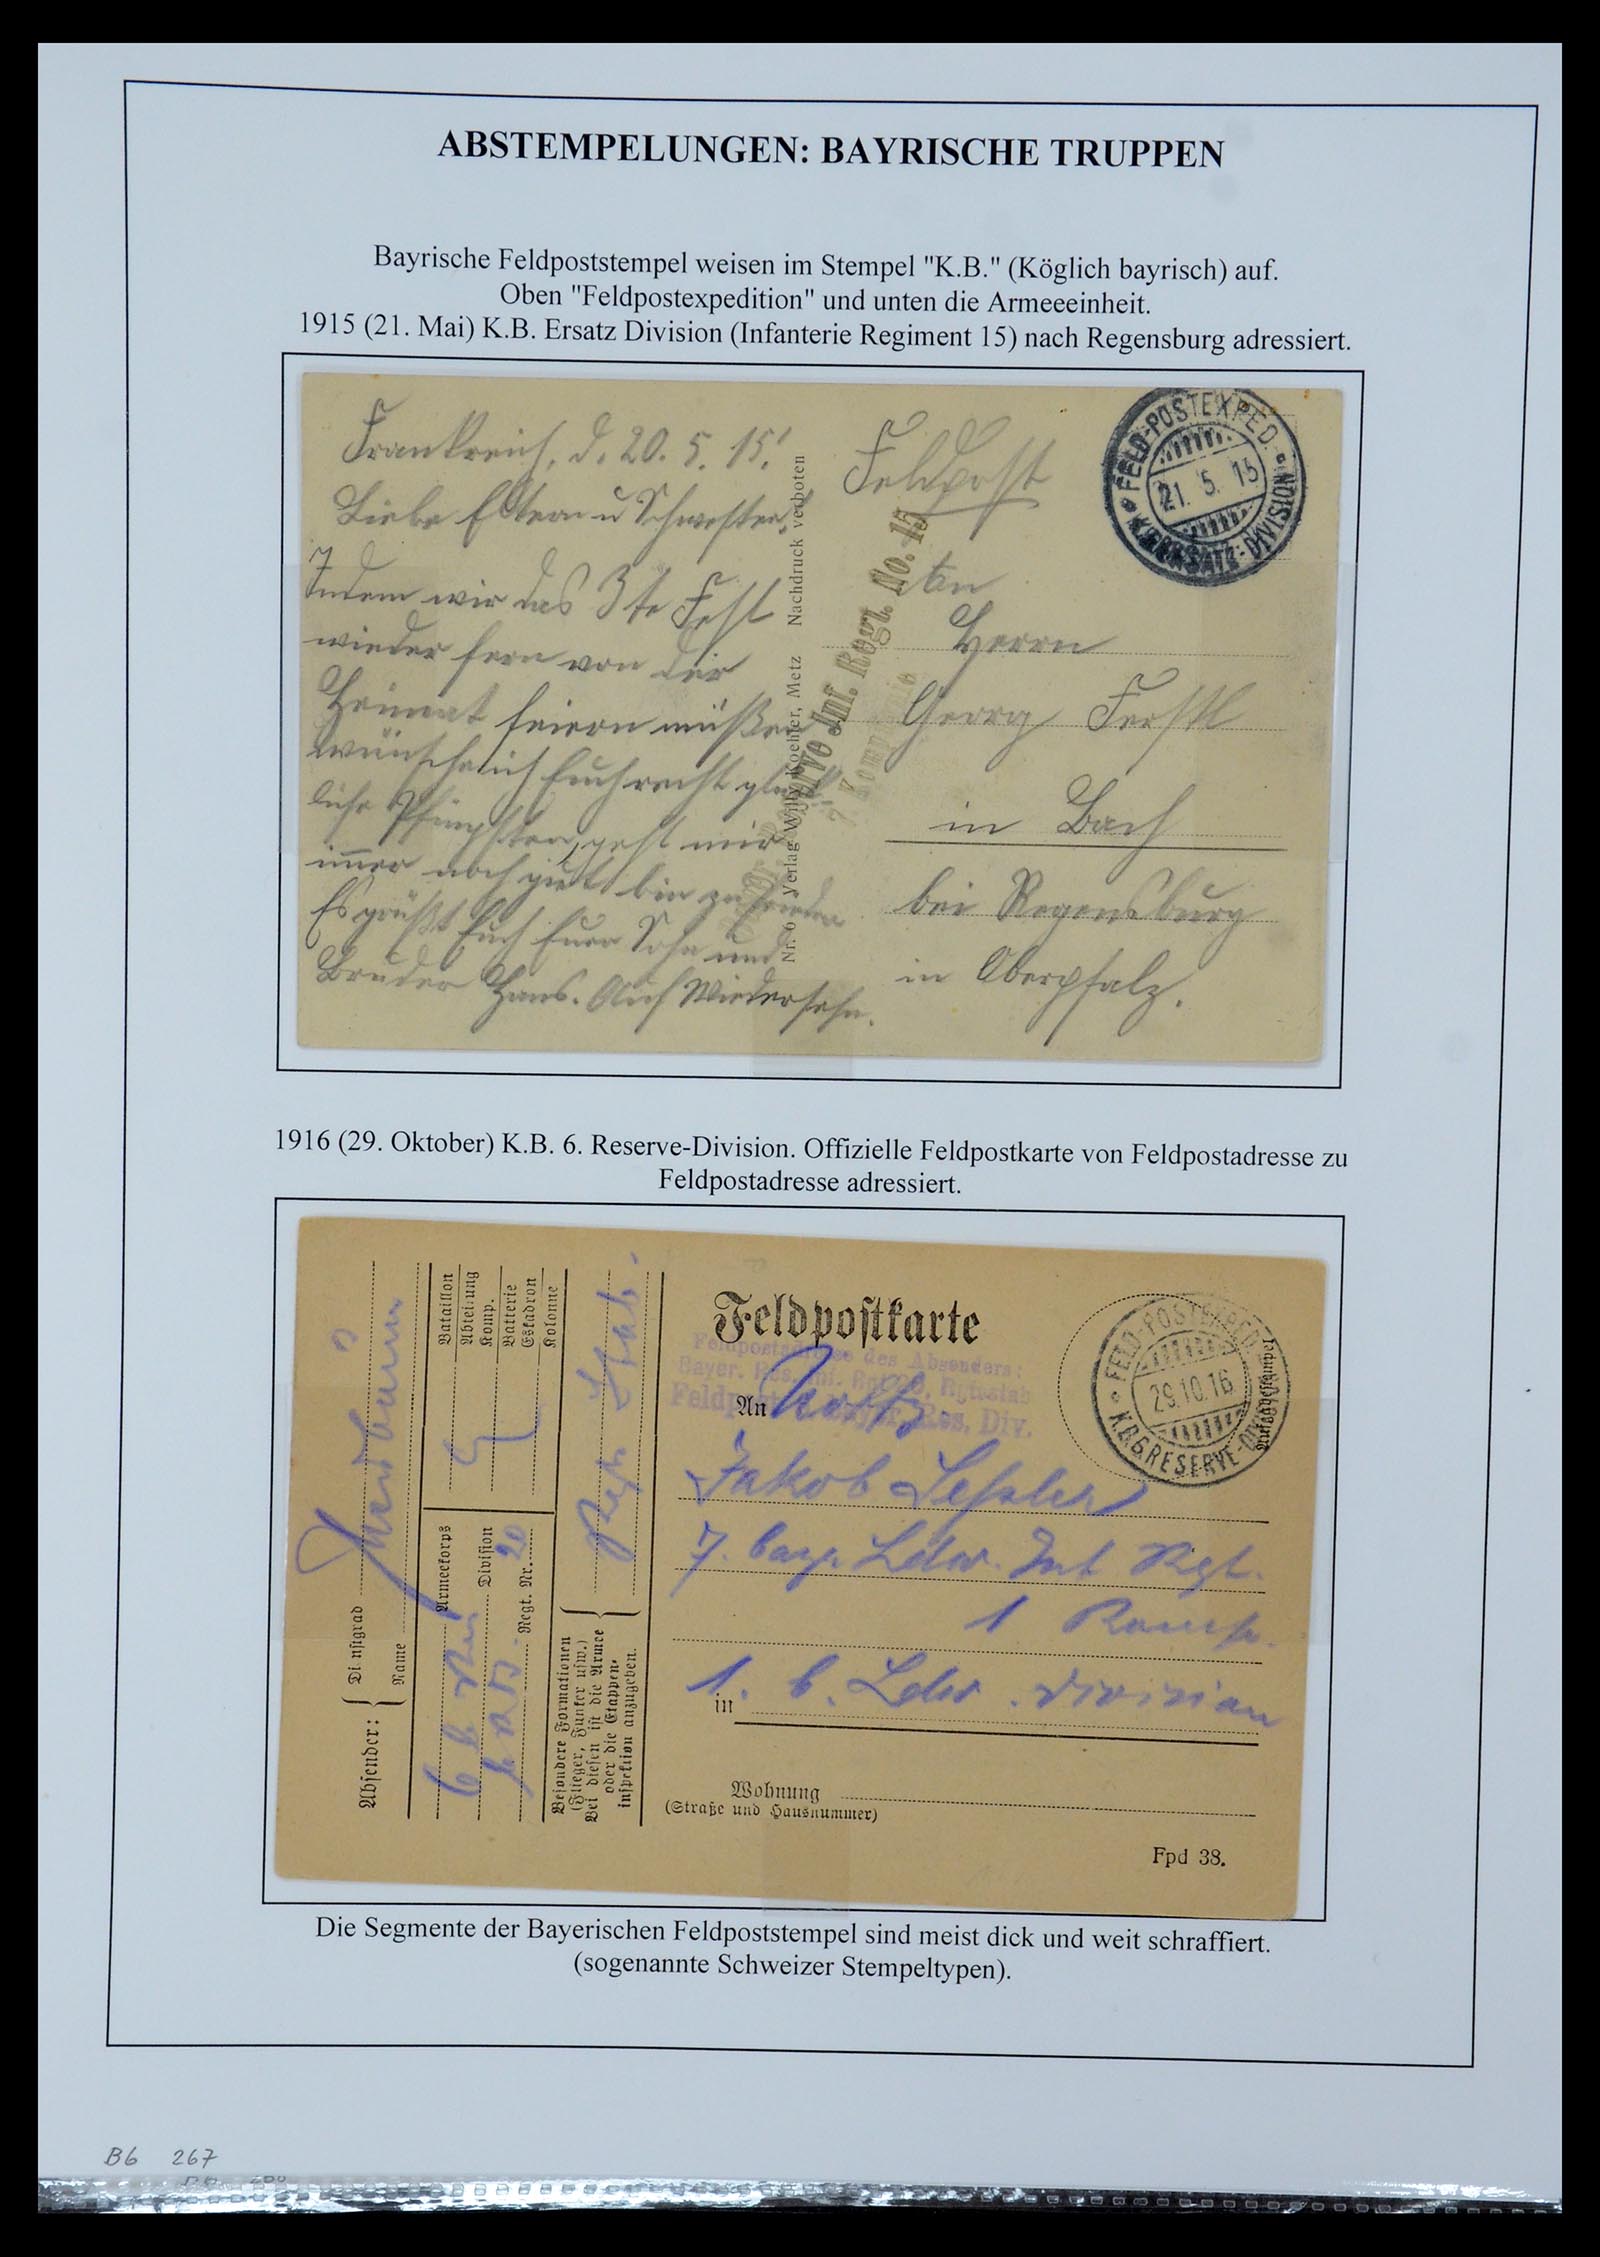 ABSTEMPELUNGEN: BAYRISCHE TRUPPEN
Bayrische Feldpoststempel weisen im Stempel "K.B." (Köglich bayrisch) auf.
Oben "Feldpostexpedition" und unten die Armeeeinheit.
1915 (21. Mai) K.B. Ersatz Division (Infanterie Regiment 15) nach Regensburg adressiert.
Frankreich, d. 20. 5. 15!
Liebe Eltern u Schwester!
Indem wir das 3te Fest
wieder fern von der
Heimat feiern müßen
wünsche ich Euch recht glück-
liche Pfingsten, geht mir
immer noch gut bin zufrieden
Es grüßt Euch Euer Sohn und
Bruder Hans. Auf Wiedersehn.
Nr. 6 Verlag Willy Koehler, Metz Nachdruck verboten
Reserve Inf. Regt. No. 15
7. Kompagnie
FELD-POSTEXPED.
21. 5. 15
K.B. ERSATZ-DIVISION
Feldpost
An
Herrn
Georg Ferstl
in Bach
bei Regensburg
in Oberpfalz.
1916 (29. Oktober) K.B. 6. Reserve-Division. Offizielle Feldpostkarte von Feldpostadresse zu
Feldpostadresse adressiert.
Absender:
Dienstgrad
Name
Armeekorps
Division
Regt. Nr. 20
Bataillon
Abteilung
Komp.
Batterie
Eskadron
Kolonne
Besondere Formationen
(Flieger, Funker usw.)
Bei diesen ist die Armee
oder die Etappen-
inspektion anzugeben.
Regts Stab.
Feldpostkarte
Feldpostadresse des Absenders:
Bayer. Res. Inf. Rgt. 20, Rgtsstab
Feldpost Bayer. Res. Div.
FELD-POSTEXPED.
29.10.16
K.B. 6. RESERVE-DIVISION
Aufgabestempel
An
Jakob
7. bayr. Ldw. Inf. Rgt.
1 Komp.
in 1. b. Ldw. Division
Wohnung
(Straße und Hausnummer)
Fpd 38.
Die Segmente der Bayerischen Feldpoststempel sind meist dick und weit schraffiert.
(sogenannte Schweizer Stempeltypen).
B6 267